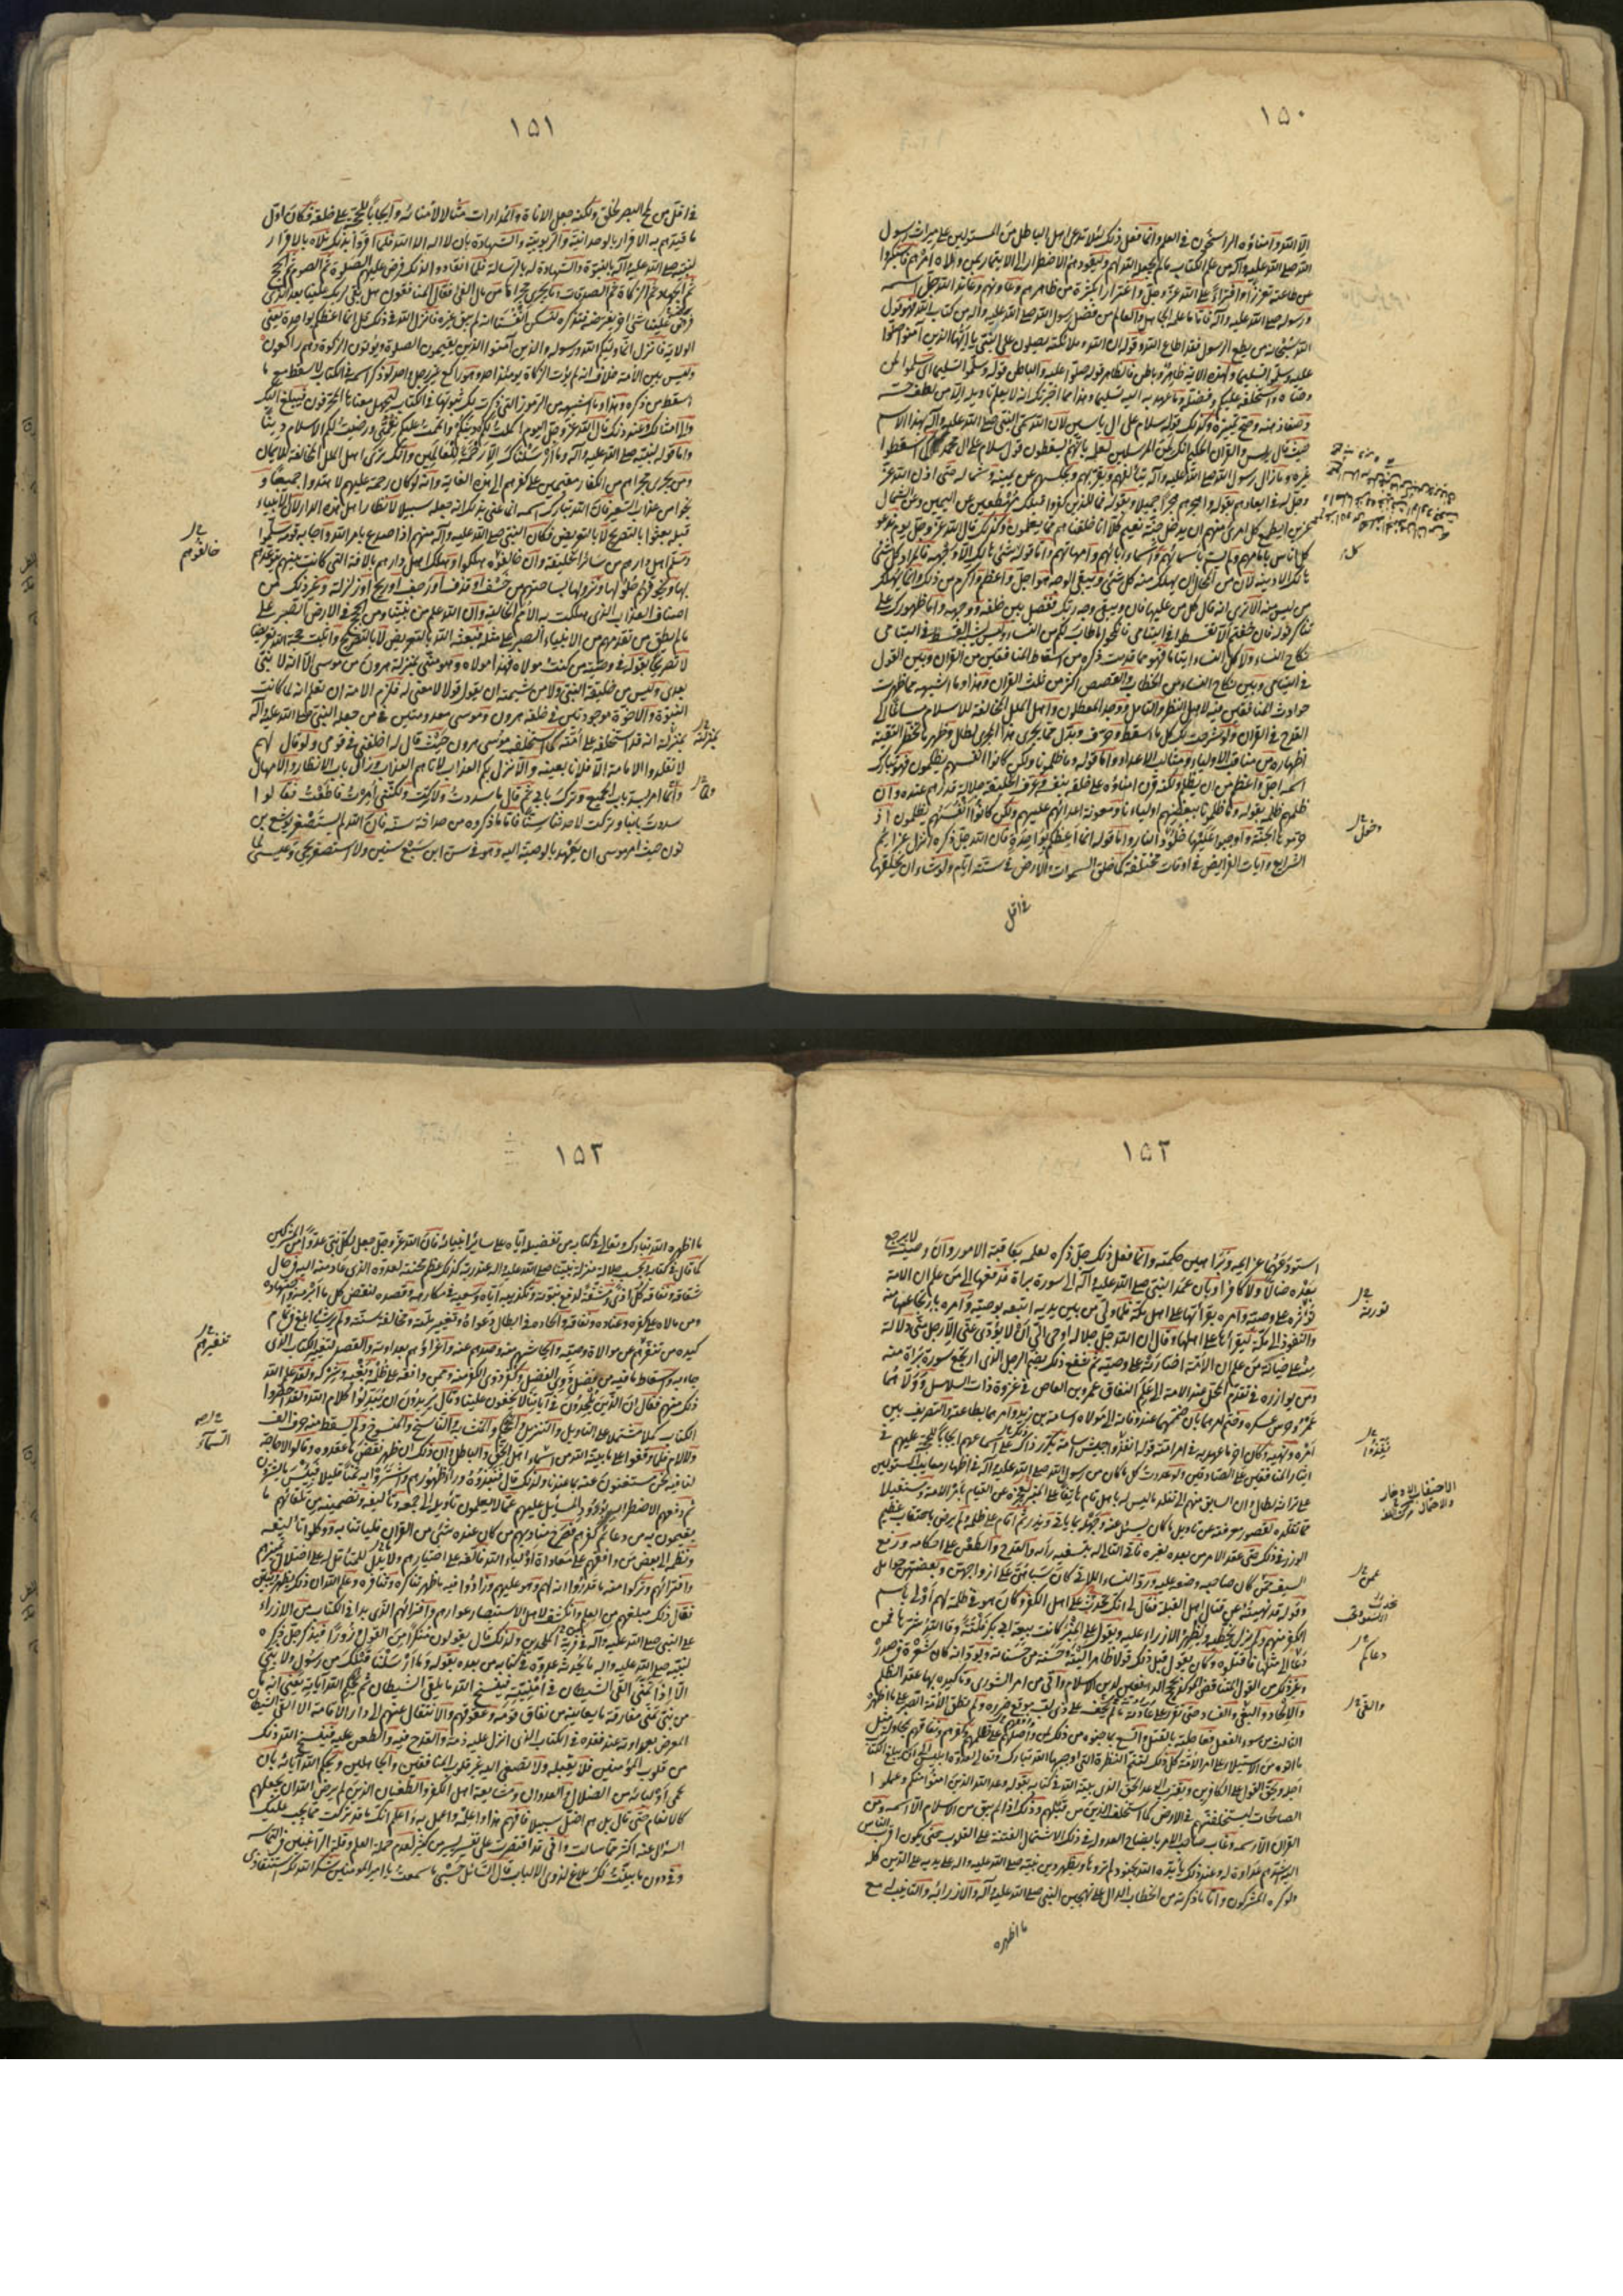 ١٥٠
الا الله وامناؤه الراسخون فى العلم وانما فعل ذلك لئلا تدعى اهل الباطل من المستولين على ميراث رسول
الله صلى الله عليه وآله من علم الكتاب مالم يجعله الله لهم وليقودهم الاضطرار الى الايتمار بمن ولاه امرهم فاستكبروا
عن طاعته تعززا وافتراء على الله عز وجل واغترارا بكثرة من ظاهرهم وعاونهم وعاند الله جل اسمه
ورسوله صلى الله عليه وآله فاما ما علمه الجاهل والعالم من فضل رسول الله صلى الله عليه وآله من كتاب الله فهو قول
الله سبحانه من يطع الرسول فقد اطاع الله وقوله ان الله وملائكته يصلون على النبى يا ايها الذين آمنوا صلوا
عليه وسلموا تسليما ولهذه الاية ظاهر وباطن فالظاهر قوله صلوا عليه والباطن قوله وسلموا تسليما اى سلموا لمن
وصاه واستخلفه عليكم وفضله وما عهد به اليه تسليما وهذا مما اخبرتك انه لا يعلم تاويله الا من لطف حسه
وصفا ذهنه وصح تمييزه وكذلك قوله سلام على ال ياسين لان الله سمى النبى صلى الله عليه وآله بهذا الاسم
حيث قال يس والقرآن الحكيم انك لمن المرسلين لعلمه بانهم يسقطون قول سلام على ال محمد كما اسقطوا
غيره وما زال رسول الله صلى الله عليه وآله يتألفهم ويقربهم ويجلسهم عن يمينه وشماله حتى اذن الله عز
وجل له فى ابعادهم بقوله واهجرهم هجرا جميلا وبقوله فما للذين كفروا قبلك مهطعين عن اليمين وعن الشمال
عزين ايطمع كل امرئ منهم ان يدخل جنة نعيم كلا انا خلقناهم مما يعلمون وكذلك قال الله عز وجل يوم ندعو
كل اناس بامامهم ولم يسم باسمائهم واسماء ابائهم وامهاتهم واما قوله كل شئ هالك الا وجهه فانما نزل كل شئ
هالك الا دينه لان من المحال ان يهلك منه كل شئ ويبقى الوجه هو اجل واعظم واكرم من ذلك وانما يهلك
من ليس منه الا ترى انه قال كل من عليها فان ويبقى وجه ربك ففصل بين خلقه ووجهه واما ظهورك على
تناكر قوله فان خفتم الا تقسطوا فى اليتامى فانكحوا ما طاب لكم من النساء وليس يشبه القسط فى اليتامى
نكاح النساء ولا كل النساء ايتاما فهو مما قدمت ذكره من اسقاط المنافقين من القرآن وبين القول
فى اليتامى وبين نكاح النساء من الخطاب والقصص اكثر من ثلث القرآن وهذا وما اشبهه مما ظهرت
حوادث المنافقين فيه لاهل النظر والتامل ووجد المعطلون واهل الملل المخالفة للاسلام مساغا الى
القدح فى القرآن ولو شرحت لك كل ما اسقط وحرف وبدل مما يجرى هذا المجرى لطال وظهر ما تحظر التقية
اظهاره من مناقب الاولياء ومثالب الاعداء واما قوله وما ظلمونا ولكن كانوا انفسهم يظلمون فهو تبارك
اسمه اجل واعظم من ان يظلم ولكنه قرن امناؤه على خلقه بنفسه وعرف الخليقة جلالة قدرهم عنده وان
ظلمهم ظلمه بقوله وما ظلمونا ببغضهم اولياءنا ومعونة اعدائهم عليهم ولكن كانوا انفسهم يظلمون اذ
حرموها الجنة واوجبوا عليها خلود النار واما قوله انما اعظكم بواحدة فان الله جل ذكره انزل عزايم
الشرايع وايات الفرايض فى اوقات مختلفة كما خلق السموات والارض فى ستة ايام ولو شاء ان يخلقها
فى اقل
كل
دخول
١٥١
فى اقل من لمح البصر لخلق ولكنه جعل الاناة والمدارات مثالا لامنائه وايجابا للحجة على خلقه فكان اول
ما قيدهم به الاقرار بالوحدانية والربوبية والشهادة بان لا اله الا الله فلما اقروا بذلك تلاه بالاقرار
لنبيه صلى الله عليه وآله بالنبوة والشهادة له بالرسالة فلما انقادوا لذلك فرض عليهم الصلوة ثم الصوم ثم الحج
ثم الجهاد ثم الزكاة ثم الصدقات وما يجرى مجراها من مال الفئ فقال المنافقون هل بقى لربك علينا بعد الذى
فرض علينا شئ اخر يفرضه فتذكره لتسكن انفسنا انه لم يبق غيره فانزل الله فى ذلك قل انما اعظكم بواحدة يعنى
الولاية فانزل انما وليكم الله ورسوله والذين آمنوا الذين يقيمون الصلوة ويؤتون الزكوة وهم راكعون
وليس بين الامة خلاف انه لم يؤت الزكاة يومئذ احد وهو راكع غير رجل واحد لو ذكر اسمه فى الكتاب لاسقط مع ما
اسقط من ذكره وهذا وما اشبهه من الرموز التى ذكرت لك ثبوتها فى الكتاب ليجهل معناها المحرفون فيبلغ اليك
والى امثالك وعند ذلك قال الله عز وجل اليوم اكملت لكم دينكم واتممت عليكم نعمتى ورضيت لكم الاسلام دينا
واما قوله لنبيه صلى الله عليه وآله وما ارسلناك الا رحمة للعالمين وانك ترى اهل الملل المخالفة للايمان
ومن يجرى مجراهم من الكفار مقيمين على كفرهم الى هذه الغاية وانه لو كان رحمة عليهم لاهتدوا جميعا و
نجوا من عذاب السعير فان الله تبارك اسمه انما عنى بذلك انه جعله سبيلا لانظار اهل هذه الدار لان الانبياء
قبله بعثوا بالتصريح لا بالتعريض فكان النبى صلى الله عليه وآله منهم اذا صدع بامر الله واجابه قومه سلموا
وسلم اهل دارهم من سائر الخليقة وان خالفوه هلكوا وهلك اهل دارهم بالافة التى كانت نبيهم يتوعدهم
بها ويخوفهم حلولها ونزولها بساحتهم من خسف او قذف او رجف او ريح او زلزلة وغير ذلك من
اصناف العذاب الذى هلكت به الامم الخالية وان الله علم من نبينا ومن الحجج فى الارض الصبر على
مالم يطق من تقدمهم من الانبياء الصبر على مثله فبعثه الله بالتعريض لا بالتصريح واثبت حجة الله تعريضا
لا تصريحا بقوله فى وصيه من كنت مولاه فهذا مولاه وهو منى بمنزلة هرون من موسى الا انه لا نبى
بعدى وليس من خليقة النبى ولا من شيمته ان يقول قولا لا معنى له فلزم الامة ان تعلم انه لما كانت
النبوة والاخوة موجودتين فى خلقة هرون وموسى معدومتين فى من جعله النبى صلى الله عليه وآله
بمنزلة انه قد استخلفه على امته كما استخلف موسى هرون حيث قال له اخلفنى فى قومى ولو قال لهم
لا تقلدوا الامامة الا فلانا بعينه والا نزل بكم العذاب لاتاهم العذاب وزال باب الانظار والامهال
واما امر بسد باب الجميع وترك بابه ثم قال ما سددت ولا تركت ولكننى امرت فاطعت فقالوا
سددت بابنا وتركت لاحدثنا سنا فاما ما ذكروه من حداثة سنه فان الله لم يستصغر يوشع بن
نون حيث امر موسى ان يعهد بالوصية اليه وهو فى سن ابن سبع سنين ولا استصغر يحيى وعيسى لما
خالفوهم
بمنزلته
١٥٢
استودعهما عزائمه وبراهين حكمته وانما فعل ذلك جل ذكره لعلمه بعاقبة الامور وان وصيه لا يرجع
بعده ضالا ولا كافرا وبان عمد النبى صلى الله عليه وآله الى سورة براة فدفعها الى من علم ان الامة
تؤثره على وصيه وامره بقرآتها على اهل مكة فلما ولى من بين يديه اتبعه بوصيه وامره بارتجاعها منه
والنفوذ الى مكة ليقرأها على اهلها وقال ان الله جل جلاله اوحى الى ان لا يؤدى عنى الا رجل منى دلالة
منه على خيانة من علم ان الامة اختارته على وصيه ثم شفع ذلك بضم الرجل الذى ارتجع سورة براة منه
ومن يوازره فى تقدم المحل عند الامة الى علم النفاق عمرو بن العاص فى غزوة ذات السلاسل وولاهما
عمرو حرس عسكره وختم امرهما بان ضمهما عند وفاته الى مولاه اسامة بن زيد وامرهما بطاعته والتصريف بين
امره ونهيه وكان اخر ما عهد به فى امر امته قوله انفذوا جيش اسامة يكرر ذلك على اسماعهم ايجابا للحجة عليهم فى
ايثار المنافقين على الصادقين ولو عددت كل ما كان من رسول الله صلى الله عليه وآله فى اظهار معايب المستولين
على تراثه لطال وان السابق منهم الى تقلد ما ليس له باهل قام هاتفا على المنبر لعجزه عن القيام بامر الامة ومستقيلا
مما تقلده لقصور معرفته عن تاويل ما كان يسئل عنه وجهله بما ياتى ويذر ثم اقام على ظلمه ولم يرض باحتقاب عظيم
الوزر فى ذلك حتى عقد الامر من بعده لغيره فاتى التالى له بتسفيه رأيه والقدح والطعن على احكامه ورفع
السيف عمن كان صاحبه وضعه عليه ورد النساء اللاتى كان سباهن على ازواجهن وبعضهن حوامل
وقوله قد نهيته عن قتال اهل القبلة فقال لى انك لحدب على اهل الكفر وكان هو فى ظلمه لهم اولى باسم
الكفر منهم ولم يزل يخطئه ويظهر الازراء عليه ويقول على المنبر كانت بيعة ابى بكر فلتة وقى الله شرها فمن
دعا الى مثلها فاقتلوه وكان يقول قبل ذلك قولا ظاهرا ليته حسنة من حسناته ويود انه كان شعرة فى صدره
وغير ذلك من القول المتناقض المؤكد لحجج الدافعين لدين الاسلام واتى من امر الشورى وتاكيده بها عقد الظلم
والالحاد والبغى والفساد حتى تقرر على ارادته ما لم يخف على ذى لب موضع ضرره ولم تطق الامة الصبر على ما اظهره
الثالث من سوء الفعل فعاجلته بالقتل واتسع بما جنوه من ذلك لمن وافقهم على ظلمهم وكفرهم ونفاقهم محاولة مثل
ما اتوه من الاستيلاء على امر الامة كل ذلك لتتم النظرة التى اوجبها الله تبارك وتعالى لعدوه ابليس الى ان يبلغ الكتاب
اجله ويحق القول على الكافرين ويقترب الوعد الحق الذى بينه الله فى كتابه بقوله وعد الله الذين امنوا منكم وعملوا
الصالحات ليستخلفنهم فى الارض كما استخلف الذين من قبلهم وذلك اذا لم يبق من الاسلام الا اسمه ومن
القرآن الا رسمه وغاب صاحب الامر بايضاح العذر له فى ذلك لاشتمال الفتنة على القلوب حتى يكون اقرب الناس
اليه اشدهم عداوة له وعند ذلك يؤيده الله بجنود لم تروها ويظهر دين نبيه صلى الله عليه وآله على يديه على الدين كله
ولو كره المشركون واما ما ذكرته من الخطاب الدال على تهجين النبى صلى الله عليه وآله والازراء به والتانيب له مع
ما اظهره
عمن
دعاكم
١٥٣
ما اظهره الله تبارك وتعالى فى كتابه من تفضيله اياه على سائر انبيائه فان الله عز وجل جعل لكل نبى عدوا من المشركين
كما قال فى كتابه وبحسب جلالة منزلة نبينا صلى الله عليه وآله عند ربه كذلك عظم محنته لعدوه الذى عاد منه اليه فى حال
شقاقه ونفاقه كل اذى ومشقة لدفع نبوته وتكذيبه اياه وسعيه فى مكارهه وقصده لنقض كل ما ابرمه واجتهاده
ومن مالاه على كفره وعناده ونفاقه والحاده فى ابطال دعواه وتغيير ملته ومخالفة سنته ولم ير شيئا ابلغ فى تمام
كيده من تنفيرهم عن موالاة وصيه وايحاشهم منه وصدهم عنه واغرائهم بعداوته والقصد لتغيير الكتاب الذى
جاء به واسقاط ما فيه من فضل ذوى الفضل وكفر ذوى الكفر منه وممن وافقه على ظلمه وبغيه وشركه ولقد علم الله
ذلك منهم فقال ان الذين يلحدون فى آياتنا لا يخفون علينا وقال يريدون ان يبدلوا كلام الله ولقد احضروا
الكتاب كملا مشتملا على التاويل والتنزيل والمحكم والمتشابه والناسخ والمنسوخ ولم يسقط منه حرف الف
ولا لام فلما وقفوا على ما بينه الله من اسماء اهل الحق والباطل وان ذلك ان ظهر نقض ما عقدوه وقالوا لا حاجة
لنا فيه نحن مستغنون عنه بما عندنا ولذلك قال فنبذوه وراء ظهورهم واشتروا به ثمنا قليلا فبئس ما يشترون
ثم دفعهم الاضطرار بورود المسائل عليهم عما لا يعلمون تاويله الى جمعه وتاليفه وتضمينه من تلقائهم ما
يقيمون به من دعائم كفرهم فصرخ مناديهم من كان عنده شئ من القرآن فلياتنا به ووكلوا تاليفه
ونظمه الى بعض من وافقهم على معاداة اولياء الله فالفه على اختيارهم وما يدل للمتأمل له على اختلال تمييزهم
وافترائهم وتركوا منه ما قدروا انه لهم وهو عليهم وزادوا فيه ما ظهر تناكره وتنافره وعلم الله ان ذلك يظهر ويبين
فقال ذلك مبلغهم من العلم وانكشف لاهل الاستبصار عوارهم وافترائهم والذى بدا فى الكتاب من الازراء
على النبى صلى الله عليه وآله من فرية الملحدين ولذلك قال يقولون منكرا من القول وزورا فيذكر جل ذكره
لنبيه صلى الله عليه وآله ما يحدثه عدوه فى كتابه من بعده بقوله وما ارسلنا من قبلك من رسول ولا نبى
الا اذا تمنى القى الشيطان فى امنيته فينسخ الله ما يلقى الشيطان ثم يحكم الله آياته يعنى انه ما
من نبى تمنى مفارقة ما يعاينه من نفاق قومه وعقوقهم والانتقال عنهم الى دار الاقامة الا القى الشيطان
المعرض بعداوته عند فقده فى الكتاب الذى انزل عليه ذمه والقدح فيه والطعن عليه فينسخ الله ذلك
من قلوب المؤمنين فلا يقبله ولا يصغى اليه غير قلوب المنافقين والجاهلين ويحكم الله آياته بان
يحمى اوليائه من الضلال والعدوان ومشايعة اهل الكفر والطغيان الذين لم يرض الله ان يجعلهم
كالانعام حتى قال بل هم اضل سبيلا فافهم هذا واعلمه واعمل به واعلم انك ما قد تركت مما يجب عليك
السؤال عنه اكثر مما سالت وانى قد اقتصرت على تفسير يسير من كثير لعدم حملة العلم وقلة الراغبين فى التماسه
وفى دون ما بينت لك بلاغ لذوى الالباب قال السائل حسبى ما سمعت يا امير المؤمنين شكر الله لك استنقاذى
تنفيرهم